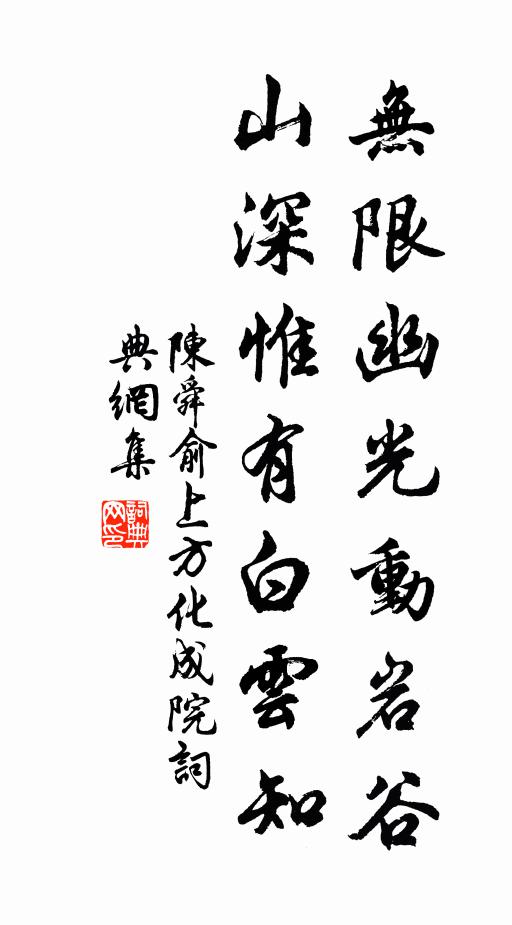 無限幽光動岩谷
山深惟有白雲知
陳舜俞上方化成院詞
典網集
詞典
网印